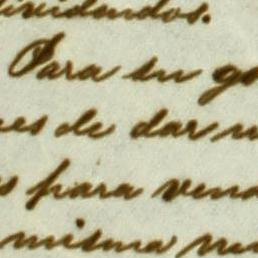 dividendos.
Para su go
es de dar
s para vend
misma